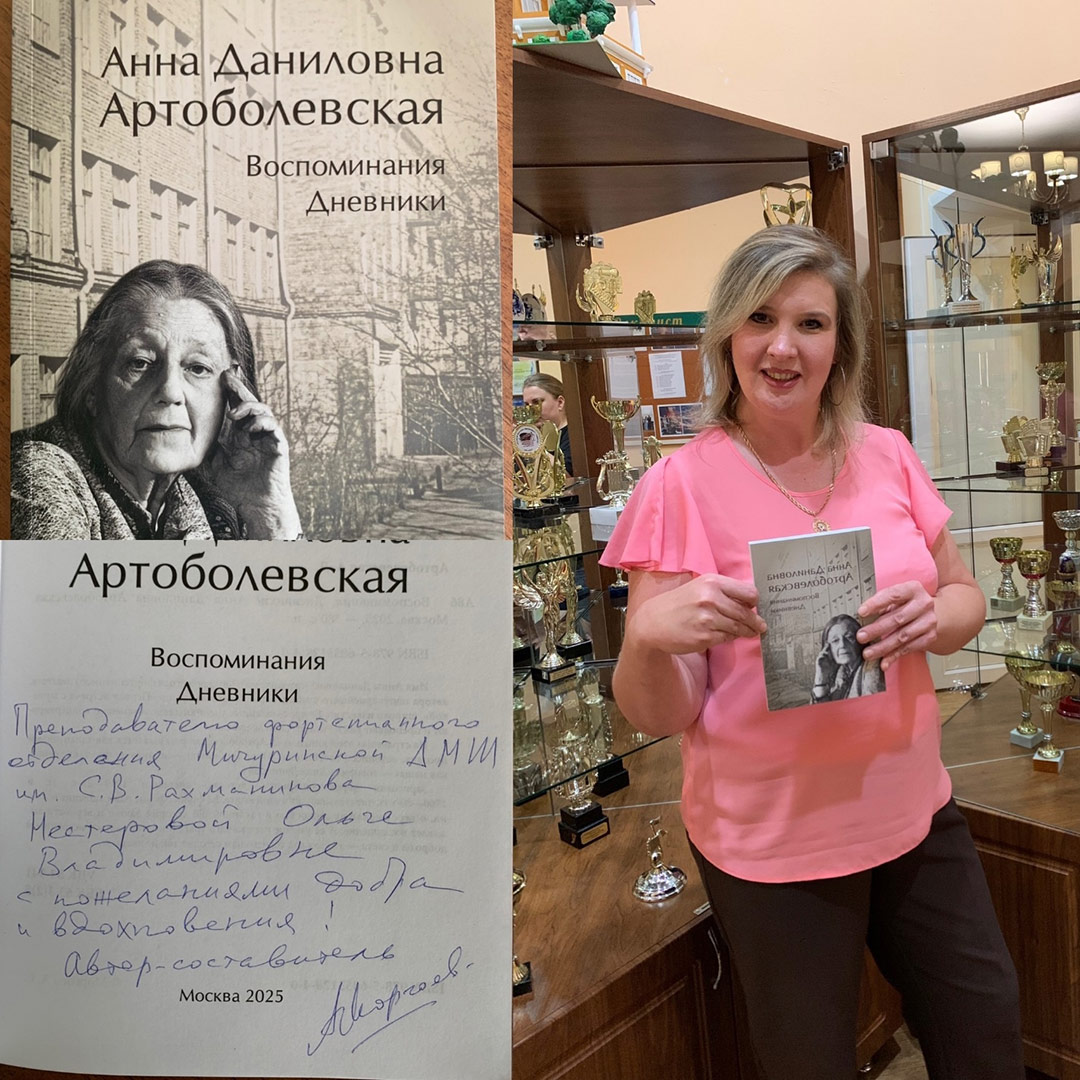 Анна Даниловна
Артоболевская
Воспоминания
Дневники
Артоболевская
Воспоминания
Дневники
Преподавателю фортепианного
отделения Мичуринской ДМШ
им. С.В. Рахманинова
Нестеровой Ольге
Владимировне
с пожеланиями добра
и вдохновения!
Автор-составитель
Москва 2025
Анна Даниловна
Артоболевская
Воспоминания
Дневники